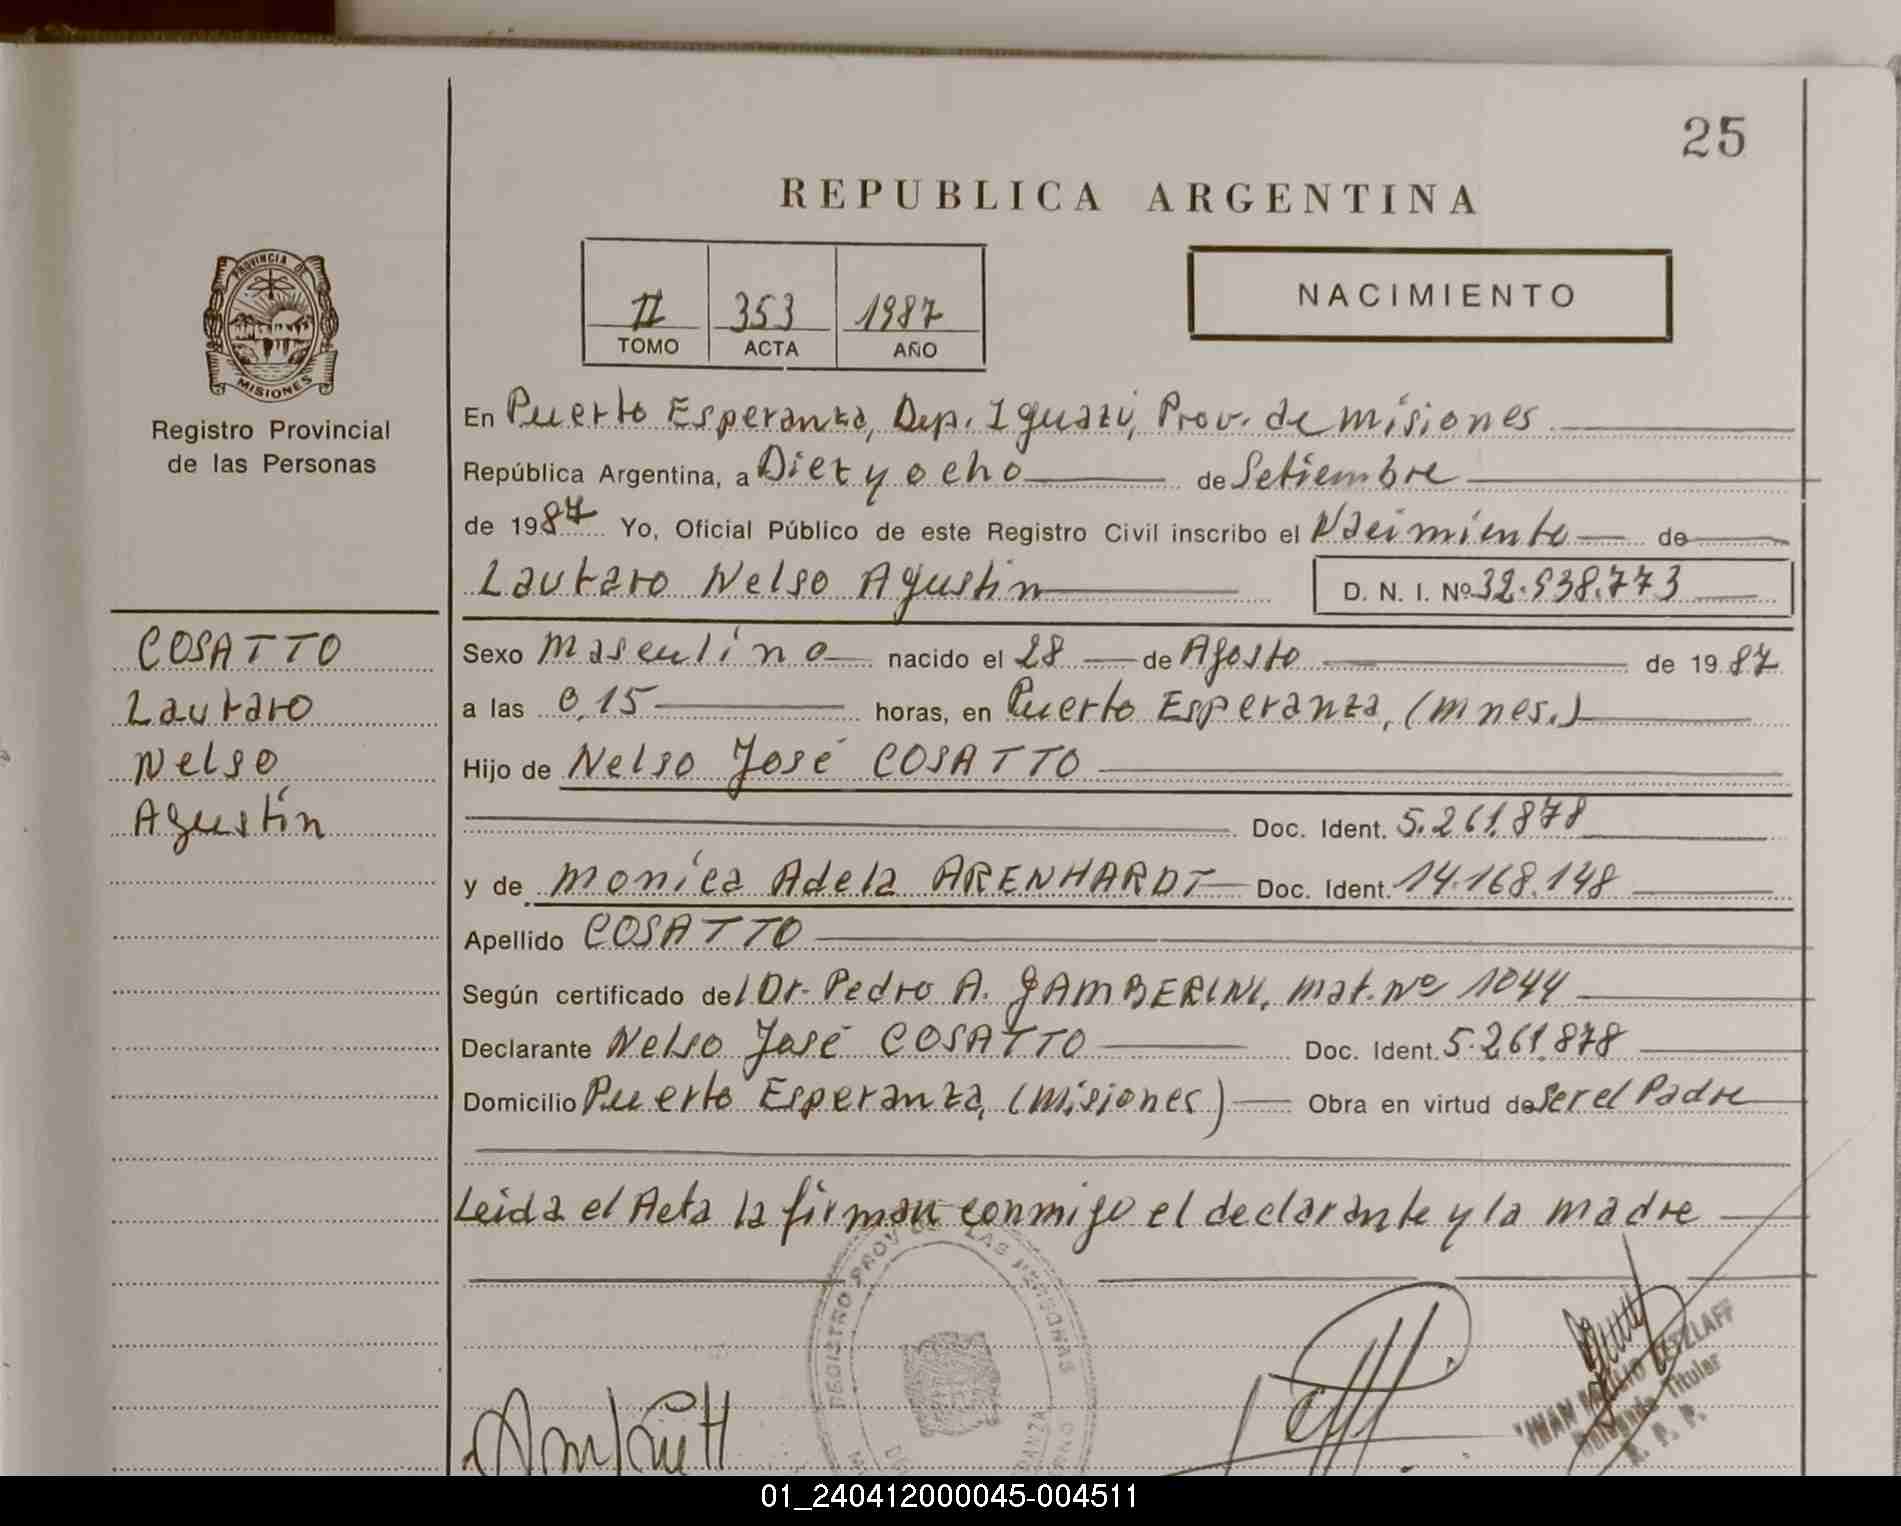 25
REPUBLICA ARGENTINA
PROVINCIA DE
MISIONES
Registro Provincial
de las Personas
II 353 1987
TOMO ACTA AÑO
NACIMIENTO
En Puerto Esperanza, Dep. Iguazú, Prov. de Misiones
República Argentina, a Diez y ocho de Setiembre
de 1987 Yo, Oficial Público de este Registro Civil inscribo el Nacimiento de
Lautaro Nelso Agustín D. N. I. Nº 32.938.773
COSATTO
Lautaro
Nelso
Agustín
Sexo Masculino nacido el 28 de Agosto de 1987
a las 0,15 horas, en Puerto Esperanza, (Mnes.)
Hijo de Nelso José COSATTO
Doc. Ident. 5.261.878
y de Monica Adela ARENHARDT Doc. Ident. 14.168.148
Apellido COSATTO
Según certificado del Dr. Pedro A. GAMBERINI, Mat. Nº 1044
Declarante Nelso José COSATTO Doc. Ident. 5.261.878
Domicilio Puerto Esperanza, (Misiones) Obra en virtud de Ser el Padre
Leida el Acta la firman conmigo el declarante y la madre
REGISTRO PROV. DE LAS PERSONAS
Titular
R. P. P.
01_240412000045-004511